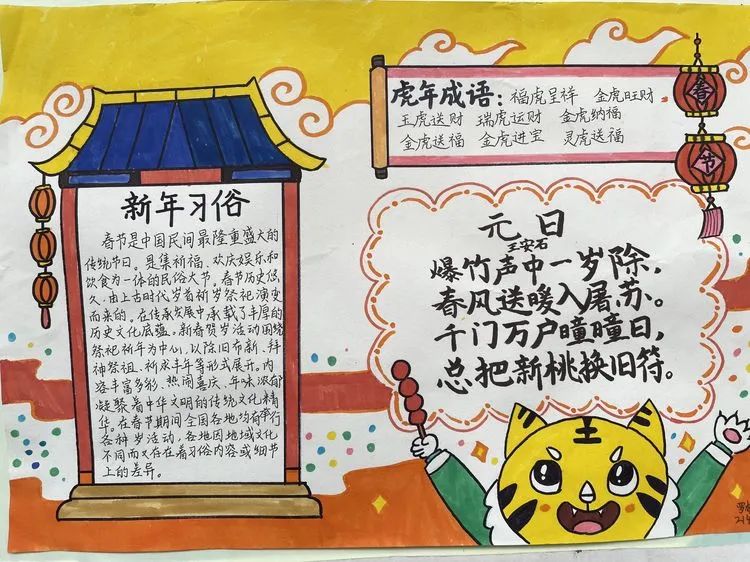 新年习俗
春节是中国民间最隆重盛大的
传统节日。是集祈福、欢庆娱乐和
饮食为一体的民俗大节。春节历史悠
久,由上古时代岁首祈岁祭祀演变
而来的。在传承发展中承载了丰厚的
历史文化底蕴。新春贺岁活动围绕
祭祀祈年为中心,以除旧布新、拜
神祭祖、祈求丰年等形式展开。内
容丰富多彩、热闹喜庆、年味浓郁
凝聚着中华文明的传统文化精
华。在春节期间全国各地均有举行
各种岁活动,各地因地域文化
不同而又存在着习俗内容或细节
上的差异。
虎年成语:福虎呈祥 金虎旺财
玉虎送财 瑞虎运财 金虎纳福
金虎送福 金虎进宝 灵虎送福
春
节
元日
王安石
爆竹声中一岁除,
春风送暖入屠苏。
千门万户曈曈日,
总把新桃换旧符。
王